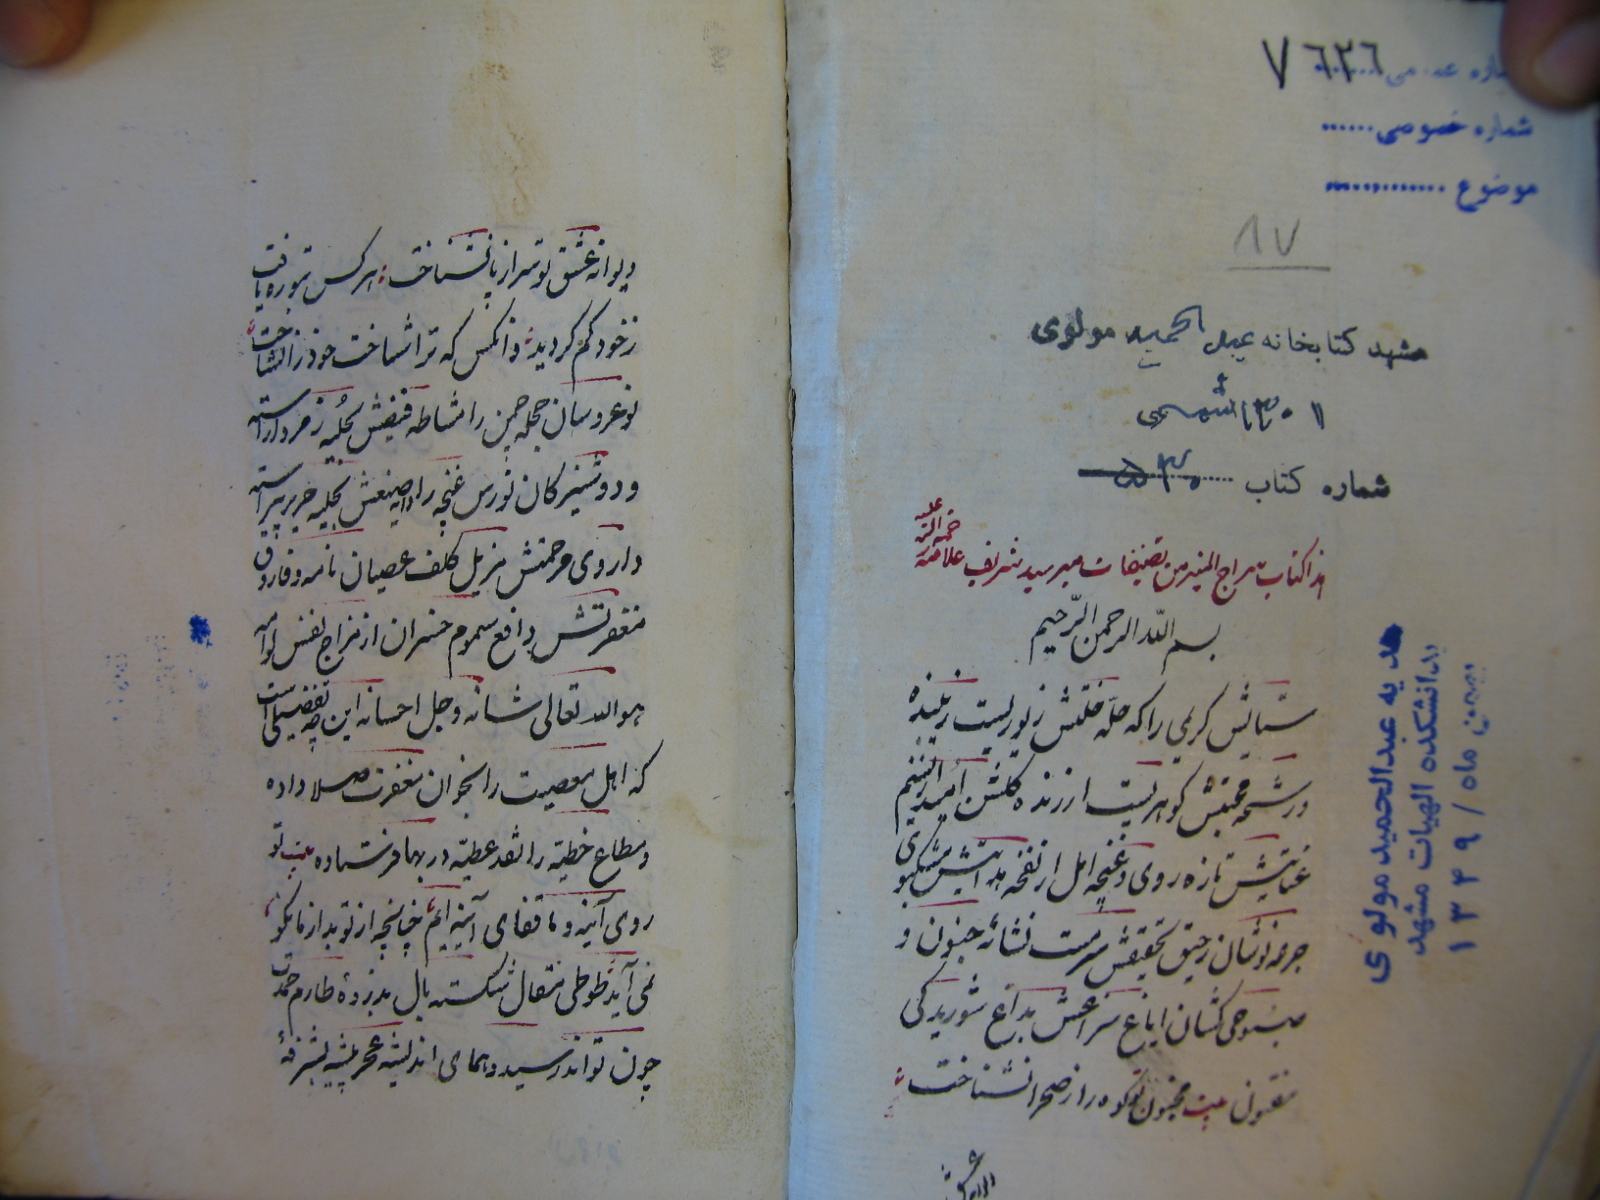 شماره عمومی ۷۶۲۶
شماره خصوصی
موضوع
۸۷
مشهد کتابخانه عبدالحمید مولوی
شمسی
شماره کتاب
هذا کتاب سراج المنیر من تصنیفات میر سید شریف علامه رحمة الله علیه
بسم الله الرحمن الرحیم
ستایش کریمی را که حلّه خلقتش زیوریست زیبنده
و رشحه محبتش گوهریست ارزنده گلشن امید از شبنم
عنایتش تازه روی و غنچه امل از نفخه هدایتش مشکبوی
جرعه نوشان رحیق تحقیقش سرمست نشائه جنون و
صبوحی کشان ایاغ سراغش بداغ شوریدگی
مفتون بیت مجنون تو کوه را ز صحرا نشناخت
دیوانه عشق
هدیه عبدالحمید مولوی
بدانشکده الهیات مشهد
بهمن ماه / ۱۳۴۹
دیوانه عشق تو سر از پا نشناخت هر کس بتو ره یافت
ز خود گم گردید وانکس که ترا شناخت خود را نشناخت
نوعروسان حجله چمن را مشاطه فیضش بحلیه زمرد آراسته
و دوشیزگان نورس غنچه را دایه صنعش بحلیه حریر پیراسته
داروی مرحمتش مزیل کلف عصیان نامه و فاروق
مغفرتش دافع سموم خسران از مزاج نفس لوامه
هو الله تعالی شانه و جل احسانه این چه تفضیلی است
که اهل معصیت را بخوان مغفرت صلا داده
و مطاع خطیه را نقد عطیه در بها فرستاده بیت تو
روی آینه و ما قفای آینه ایم چنانچه از تو بد از ما نکو
نمی آید طوطی مقال شکسته بال بذروهٔ طارم حمدت
چون تواند رسید و همای اندیشه عجز پیشه بشرفهٔ